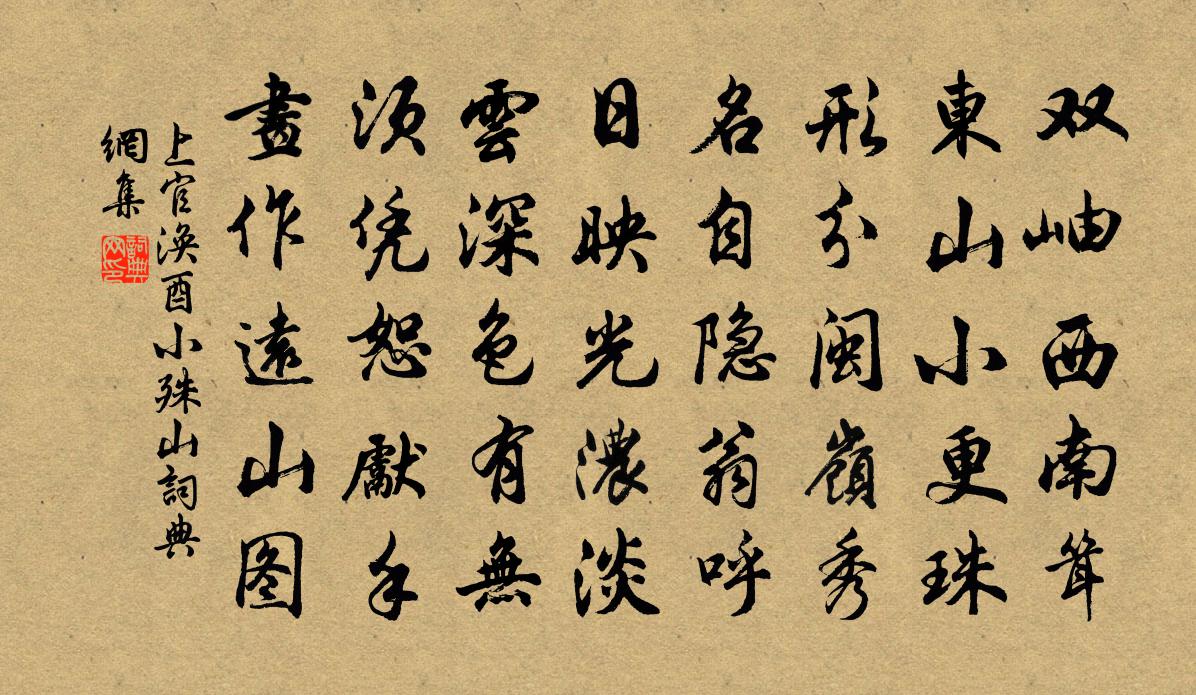 双岫西南耸
東山小更珠
形分闽嶺秀
名自隐翁呼
日映光濃淡
雲深色有無
须凭恕獻手
畫作遠山图
上官涣酉小殊山詞典
網集
詞典网印